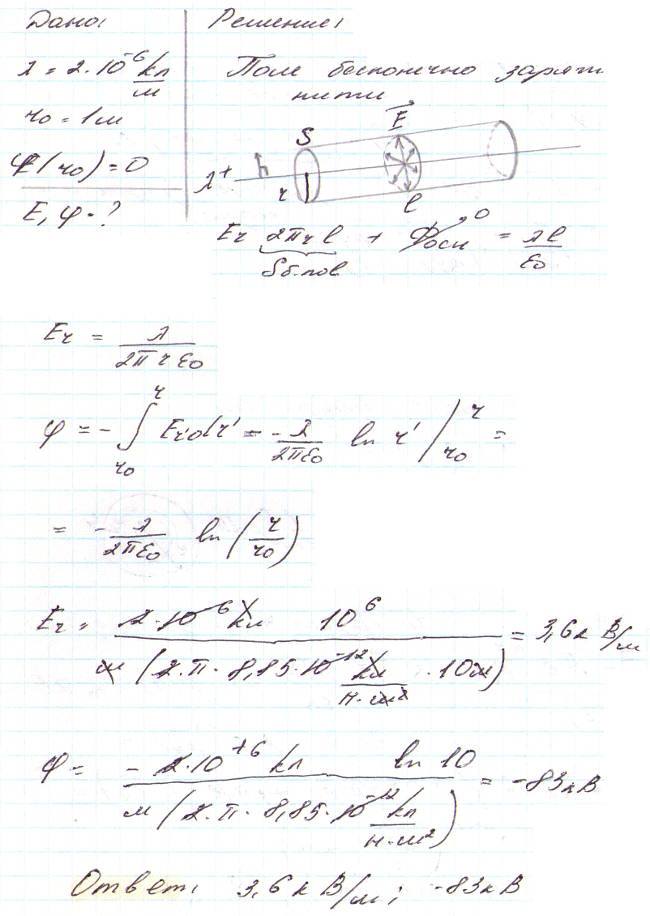 Дано:
λ = 2·10⁻⁶ кл/м
r₀ = 1 м
φ(r₀) = 0
E, φ - ?
Решение:
Поле бесконечно заряж
нити
S E
λ + r l
Er 2πrl + Φосн = λl/ε₀
Sб.пов 0
Er = λ/(2πrε₀)
φ = - ∫ Er'dr' = - λ/(2πε₀) ln r' | r r₀ =
= - λ/(2πε₀) ln (r/r₀)
Er = 2·10⁻⁶ кл 10⁶ / м (2·π·8,85·10⁻¹² кл/(Н·м²) ·10м) = 3,6к В/м
φ = - 2·10⁺⁶ кл ln 10 / м (2·π·8,85·10⁻¹² кл/(Н·м²)) = -83кВ
Ответ: 3,6 к В/м; -83кВ